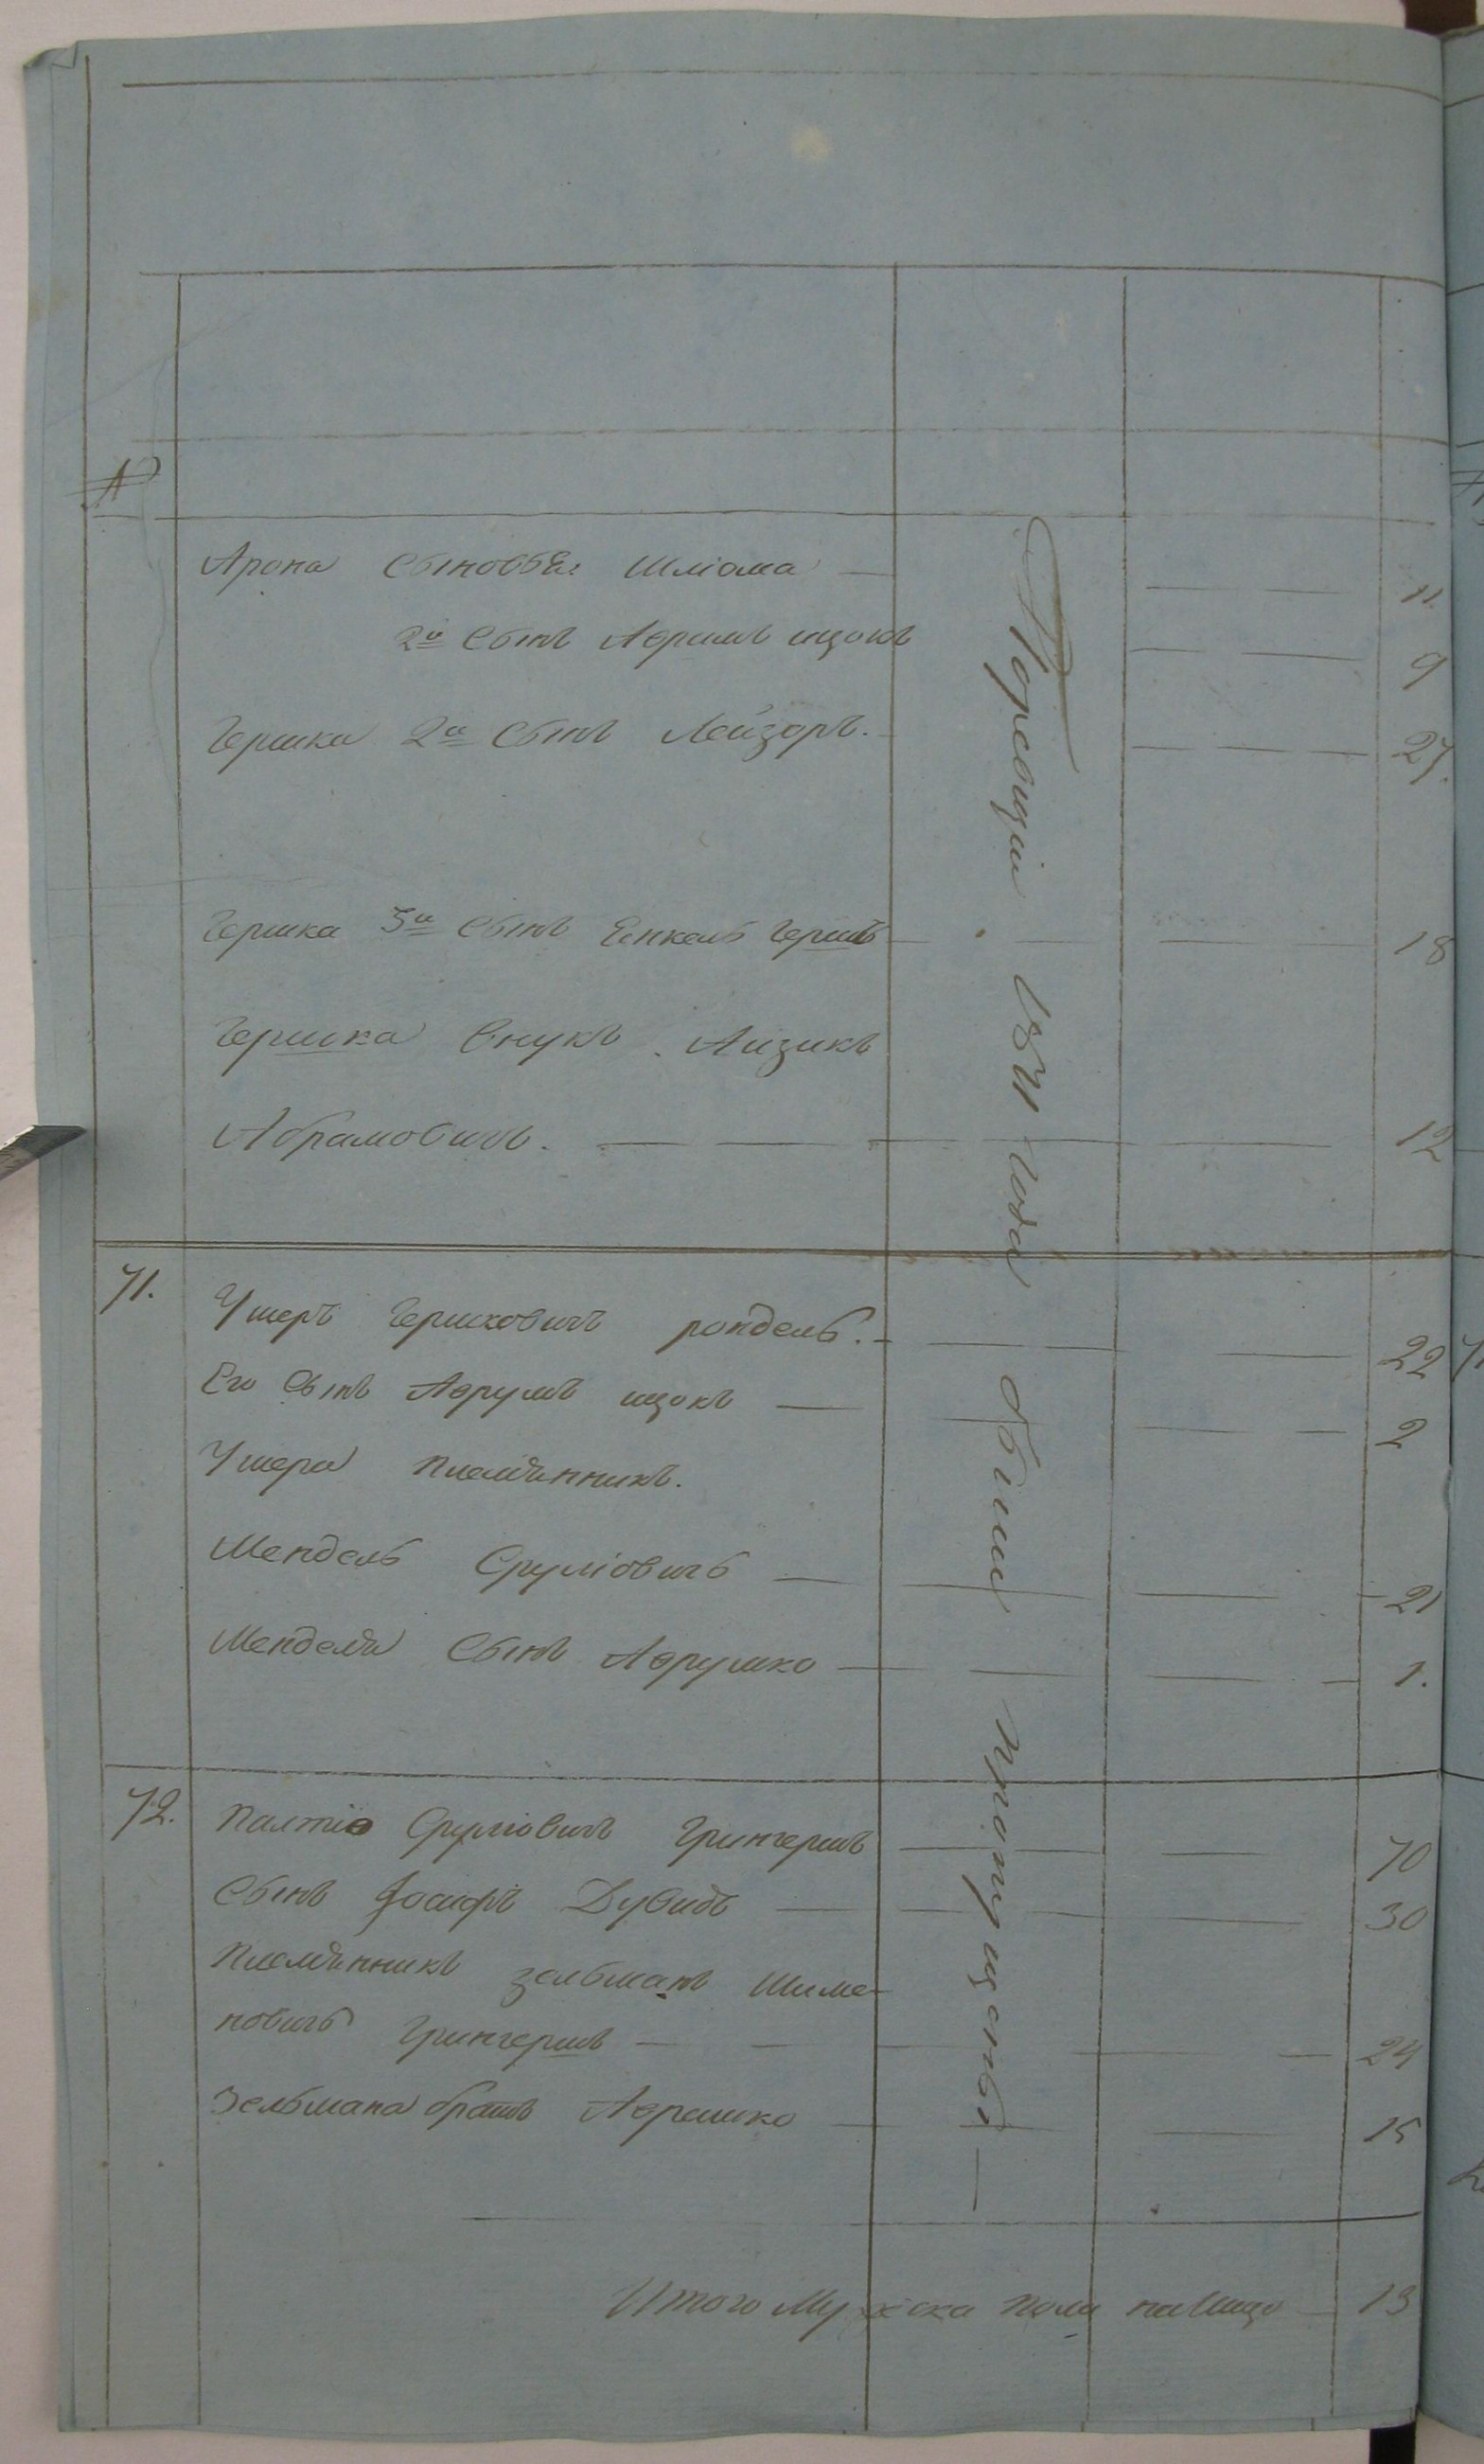 №
Арона Сыновья: Шліома — — — 11
2й Сынъ Аврумъ ицокъ — — 9
Гершка 2й Сынъ Лейзоръ. — — 27.
Гершка 3й Сынъ Енкель Гершъ — — — 18
Гершка Внукъ Аизикъ
Абрамовичъ. — — — — 12
71. Ушеръ Гершковичъ рондель. — — — 22
Его Сынъ Аврумъ ицокъ — — — 2
Ушера племянникъ.
Мендель Сруліовичъ — — — 21
Менделя Сынъ Аврумко — — — 1.
72. Сруліовичъ Грингершъ — — 70
Сынъ Іосифъ Дувидъ — — — 30
племянникъ зельманъ Шиме-
новичъ Грингершъ — — — — 24
Зельмана братъ Аврамко — — — 15
1811 года
Итого Мужеска пола налицо — 13